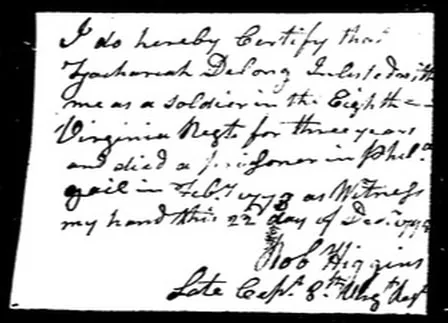 I do hereby Certify that
Zachariah Delong Inlisted with
me as a Soldier in the Eighth =
Virginia Regt for three years
and died a prisoner in Phila
gail in Feby 1778 as Witness
my hand this 22 day of Decr
Rob Higgins
Late Capt. 8th Virga Regt